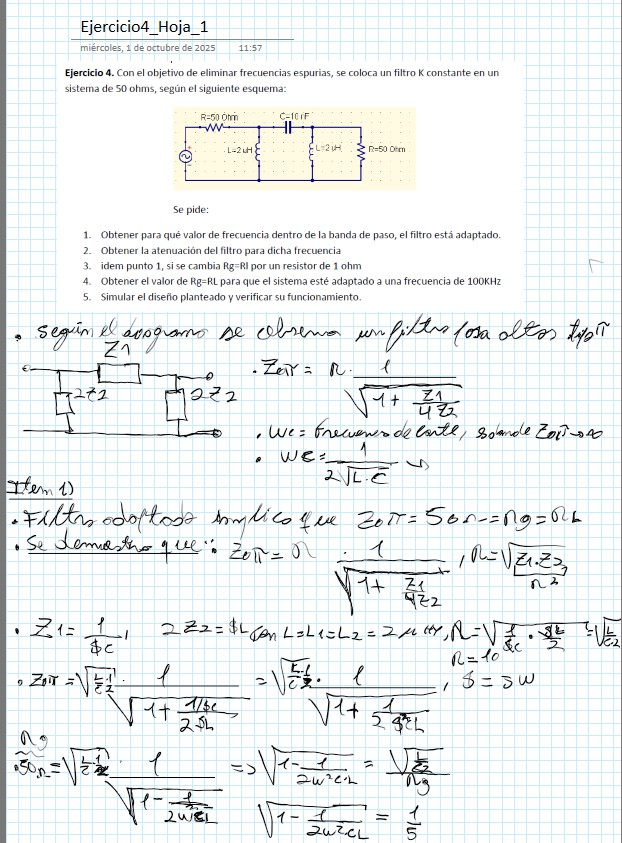 Ejercicio4_Hoja_1
miércoles, 1 de octubre de 2025 11:57
Ejercicio 4. Con el objetivo de eliminar frecuencias espurias, se coloca un filtro K constante en un
sistema de 50 ohms, según el siguiente esquema:
R=50 Ohm C=10 nF
L=2 uH L=2 uH R=50 Ohm
Se pide:
1. Obtener para qué valor de frecuencia dentro de la banda de paso, el filtro está adaptado.
2. Obtener la atenuación del filtro para dicha frecuencia
3. idem punto 1, si se cambia Rg=Rl por un resistor de 1 ohm
4. Obtener el valor de Rg=RL para que el sistema esté adaptado a una frecuencia de 100KHz
5. Simular el diseño planteado y verificar su funcionamiento.
• según el se observa un filtro pasa altos tipo π
Z1
2Z2 2Z2
• Zoπ = R · 1 / √(1 + Z1/4Z2)
• Wc = frecuencia de corte, donde Zoπ → ∞
• Wc = 1 / 2√(L·C)
Item 1)
• Filtro adaptado implica que Zoπ = 50Ω = Rg = RL
• Se demuestra que: Zoπ = R · 1 / √(1 + Z1/4Z2) , R = √(Z1·Z2)
R²
• Z1 = 1/$C , 2Z2 = $L con L=L1=L2 = 2 μHy, R = √(1/$C · $L/2) = √(L/C2)
R = 10
• Zoπ = √(L/C · 1/2) · 1 / √(1 + 1/$C / 2$L) = √(L/C · 1/2) · 1 / √(1 + 1/2$²CL) , $ = jw
Rg
• 50Ω = √(L/C · 1/2) · 1 / √(1 - 1/2w²CL) => √(1 - 1/2w²CL) = √(L/C2) / Rg
√(1 - 1/2w²CL) = 1/5